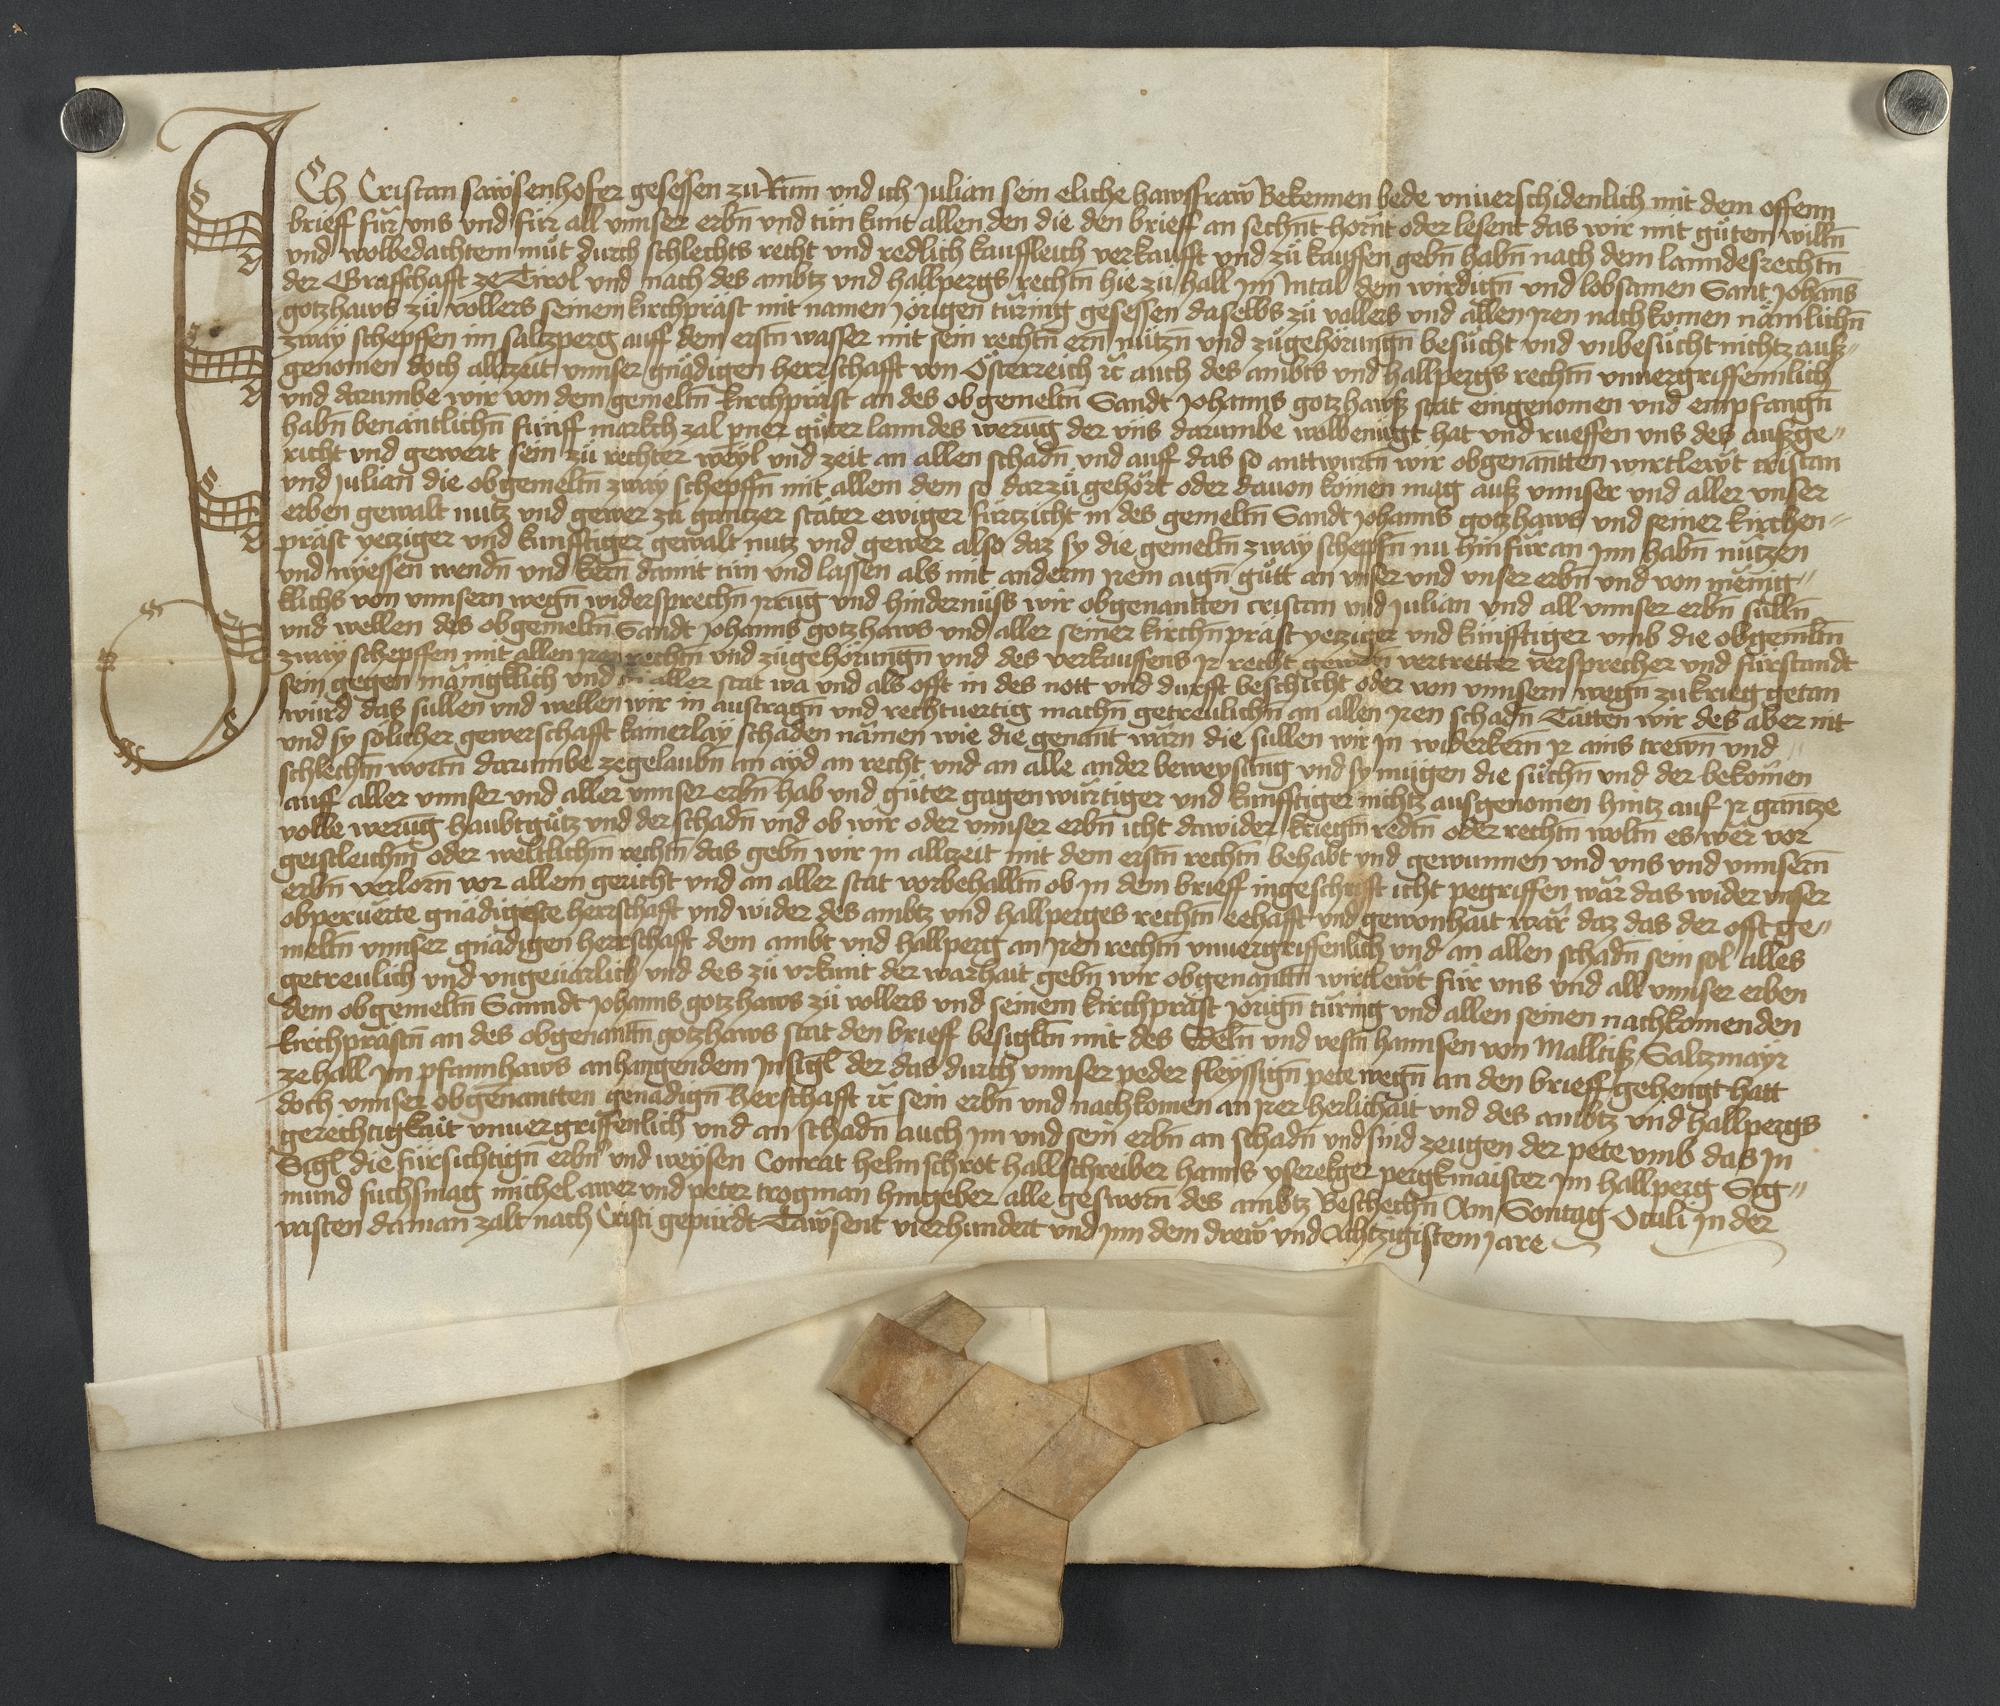 Ich Cristan sawsenhofer gesessen zu Rum und ich Julian sein eliche hawsfraw Bekennen bede vnuerschidenlich mit dem offenn
brieff für vns vnd für all vnnser erbñ vnd tün kunt allen den die den brieff an sechñt hornt oder lesent das wir mit gütem willñ
vnd wolbedachtem müt durch schlechts recht vnd redlich kauffleich verkaufft vnd zü kauffen gebñ habñ nach dem lanndesrechtñ
der Graffschafft ze Tirol vnd nach des ambtz vnd hallpergs rechtñ hie zü hall jm Intal dem wirdigñ vnd lobsamen Sant Johanns
gotzhaws zü vollers seinem kirchpräst mit namen Jörigen türing gesessen daselbs zü vollers vnd allen jren nachkomen nämlichñ
zway schepffen im saltzperg auff dem erstñ wasser mit sein rechtñ ern nützñ vnd zügehörungñ besücht vnd vnbesücht nichtz auß=
genomen doch alltzeit vnnser gnädigen herrschafft von Österreich ec auch des ambts vnd hallpergs rechtñ vnuergriffennlich
vnd darumbe wir von dem gemeltñ kirchpräst an des obgemeltñ Sandt Johanns gotzhawß stat eingenomen vnd empfangñ
habñ benäntlichñ fünff markch zal pner güter lanndes werūg der vns darumbe wolbenügt hat vnd rueffen vns des außge=
richt vnd gewert sein zü rechter weyl vnd zeit an allen schadñ vnd auff das so anttwurtñ wir obgenantten wirtlewt cristan
vnd Julian die obgemeltñ zway schepffñ mit allem dem so darzü gehört oder dauon komen mag auß vnnser vnd aller vnser
erben gewalt nutz vnd gewer zü gantzer stäter ewiger fürtzicht in des gemeltñ Sandt Johanns gotzhaws vnd seiner kirchen=
präst yetziger vnd kunfftiger gewalt nutz vnd gewer also daz sy die gemeltñ zway schepfñ nu hinfür an jnn habñ nützen
vnd nyessen wendñ vnd kern damit tün vnd lassen als mit anderm jrem aigñ gütt an vnser vnd vnser erbñ vnd von menig=
klichs von vnnsern wegñ widersprechñ jrrūg vnd hindernüss wir obgenantten cristan vnd Julian vnd all vnnser erbñ süllñ
vnd wellen des obgemeltñ Sandt Johanns gotzhaws vnd aller seiner kirchñpräst yetziger vnd künfftiger vmb die obgemltñ
zway schepffen mit allen jren rechtñ vnd zügehörungñ vnd des verkauffens jr recht gewern vertretter versprecher vnd fürstandt
sein gegen mänigklich vnd an aller stat wa vnd als offt in des nott vnd durfft beschicht oder von vnnsern wegñ zu krieg getan
würd das süllen vnd wellen wir in austragñ vnd rechtuertig machñ getreulichñ an allen jren schadñ Tätten wir des aber nit
vnd sy solicher gewerschafft kainerlay schaden nämen wie die genant wärn die süllen wir jn widerkern jr ains trewñ vnd
schlechtñ wortñ darumbe zegelaubñ an ayd an recht vnd an alle ander beweysūng vnd sy mügen die süchñ vnd der bekomen
auff aller vnnser vnd aller vnnser erbñ hab vnd güter gagenwürtiger vnd kunfftiger nichtz ausgenomen hintz auf jr gantze
volle werūg haubtgütz vnd der schadñ vnd ob wir oder vnnser erbñ icht dawider kriegtñ redtñ oder rechtñ woltñ es wer vor
geistleichñ oder weltlichñ rechtñ das gebñ wir jn alltzeit mit dem erstñ rechtñ behabt vnd gewunnen vnd vns vnd vnnsern
erbñ verlorn vor allem gericht vnd an aller stat vorbehalltñ ob jn dem brieff ingeschrifft icht pegriffen wär das wider vnser
obperuerte gnädigiste herrschafft vnd wider des ambtz vnd hallperges rechtñ eehafft vnd gewonhait wär daz das der offt ge=
meltñ vnnser gnädigen herrschafft dem ambt vnd hallperg an jren rechtñ vnuergriffenlich vnd an allen schadñ sein sol alles
getreulich vnd vngeuärlich vnd des zü vrkunt der warhait gebñ wir obgenanttñ wirtlewt für vns vnd all vnnser erben
dem obgemeltñ Sanndt Johanns gotzhaws zü vollers vnd seinem kirchpräst Jörigñ türing vnd allen seinen nachkomenden
kirchprästñ an des obgenantñ gotzhaws stat den brieff besigltñ mit des Edeln vnd vestñ hannsen von Malltiß Saltzmayr
ze hall jm pfannhaws anhangendem Insigl der das durch vnnser peder fleyssigñ pete wegñ an den brieff gehengt hatt
doch vnnser obgenantten genädigñ herschafft ec sein erbñ vnd nachkomen an jrer herlichait vnd des ambtz vnd hallpergs
gerechtigkait vnuergriffenlich vnd an schadñ auch jm vnd sein erbñ an schadñ vnd sind zeugen der pete vmb das In
Sigl die fürsichtigñ erbñ vnd weysen Conrat helmschrot hallschreiber hanns yserekger pergkmaister jm hallperg Sig=
mund fuchsmag michel awer vnd peter trogman hingeber alle gesworn des ambtz Beschechñ Am Sontag Oculi jn der
vasten da man zalt nach Cristi gepürdt Tawsent vierhundert vnd jnn dem drew vnd Achtzigistem jare